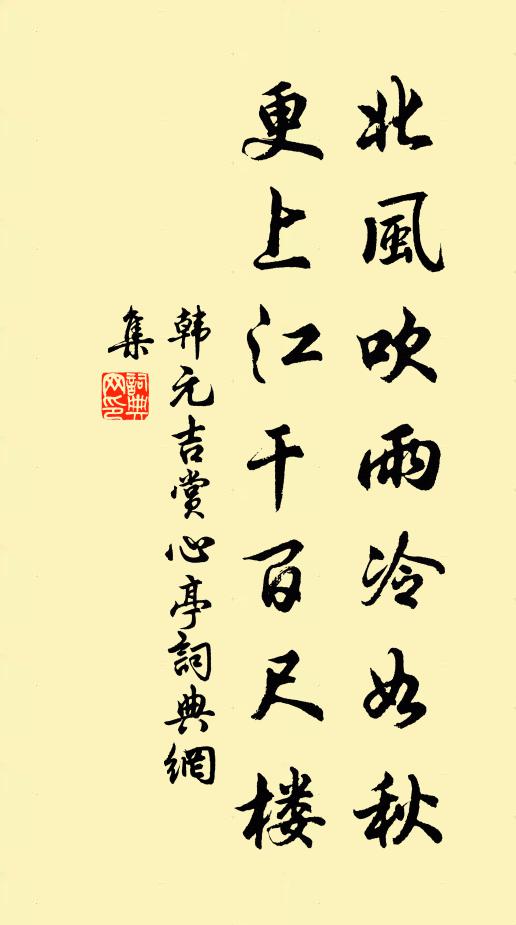 北風吹雨冷如秋
更上江干百尺楼
韩元吉賞心亭詞典網
集
詞典網印